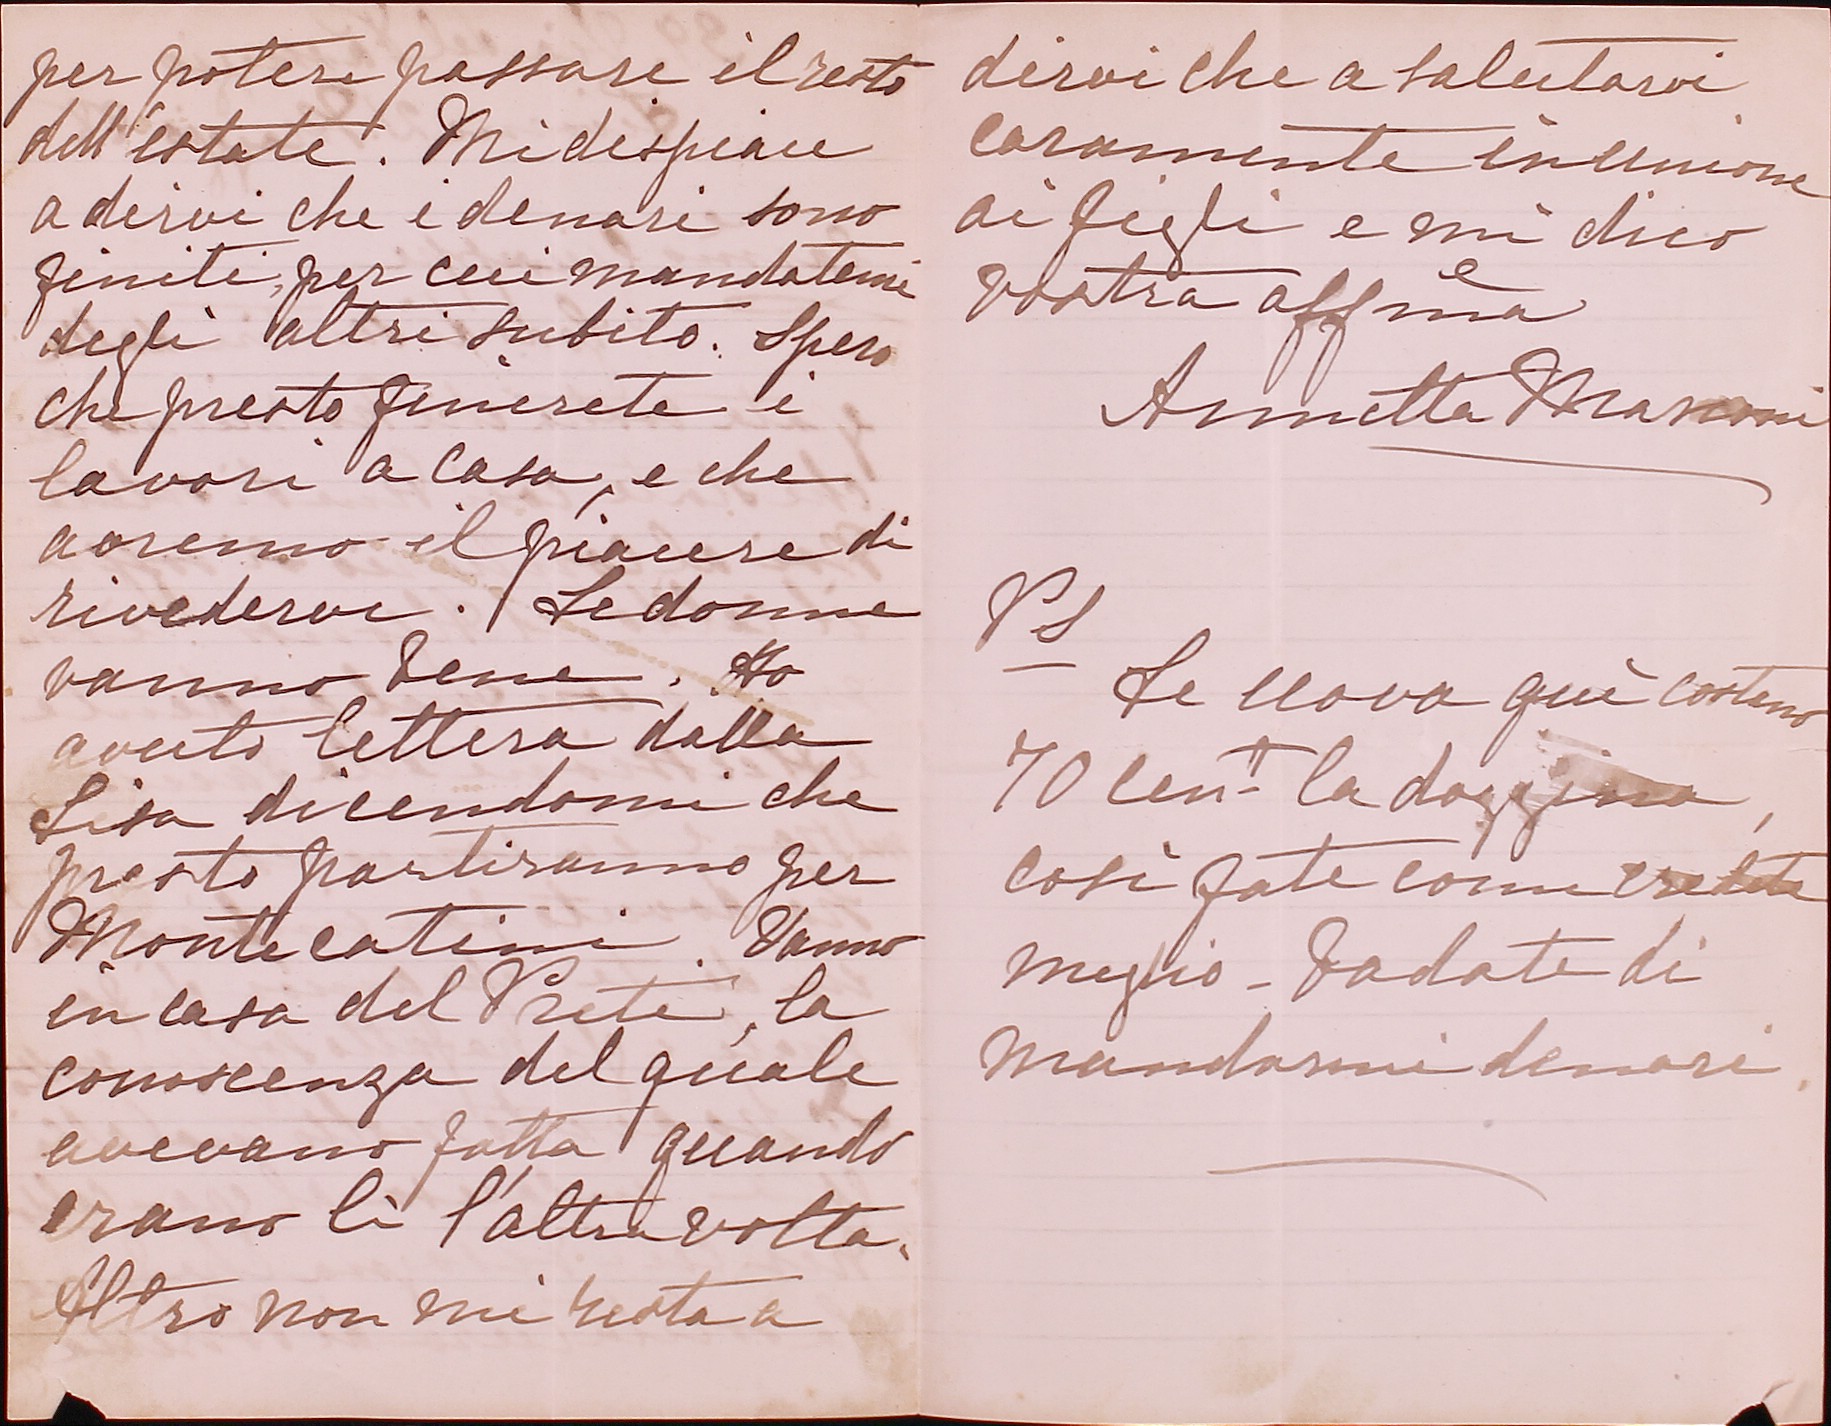 per potere passare il resto
dell'estate. Mi dispiace
a dirvi che i denari sono
finiti, per cui mandatemi
degli altri subito. Spero
che presto finirete i
lavori a casa, e che
avremo il piacere di
rivedervi. Le donne
vanno bene. Ho
avuto lettera dalla
Lisa dicendomi che
presto partiranno per
Montecatini. Vanno
in casa del Preti, la
conoscenza del quale
avevano fatta quando
erano lì l'altra volta.
Altro non mi resta a
dirvi che a salutarvi
caramente in unione
ai figli e mi dico
vostra affma
Annetta
PS
Le uova qui costano
70 cent la dozzina,
così fate come credete
meglio - Badate di
mandarmi denari.